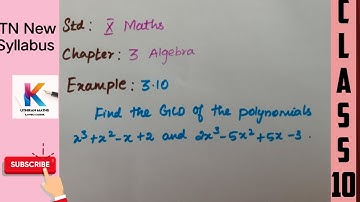 TN New
Syllabus
Std: X Maths
Chapter: 3 Algebra
Example: 3.10
Find the GCD of the polynomials
x³+x²-x+2 and 2x³-5x²+5x-3.
K
SUBSCRIBE
CLASS 10